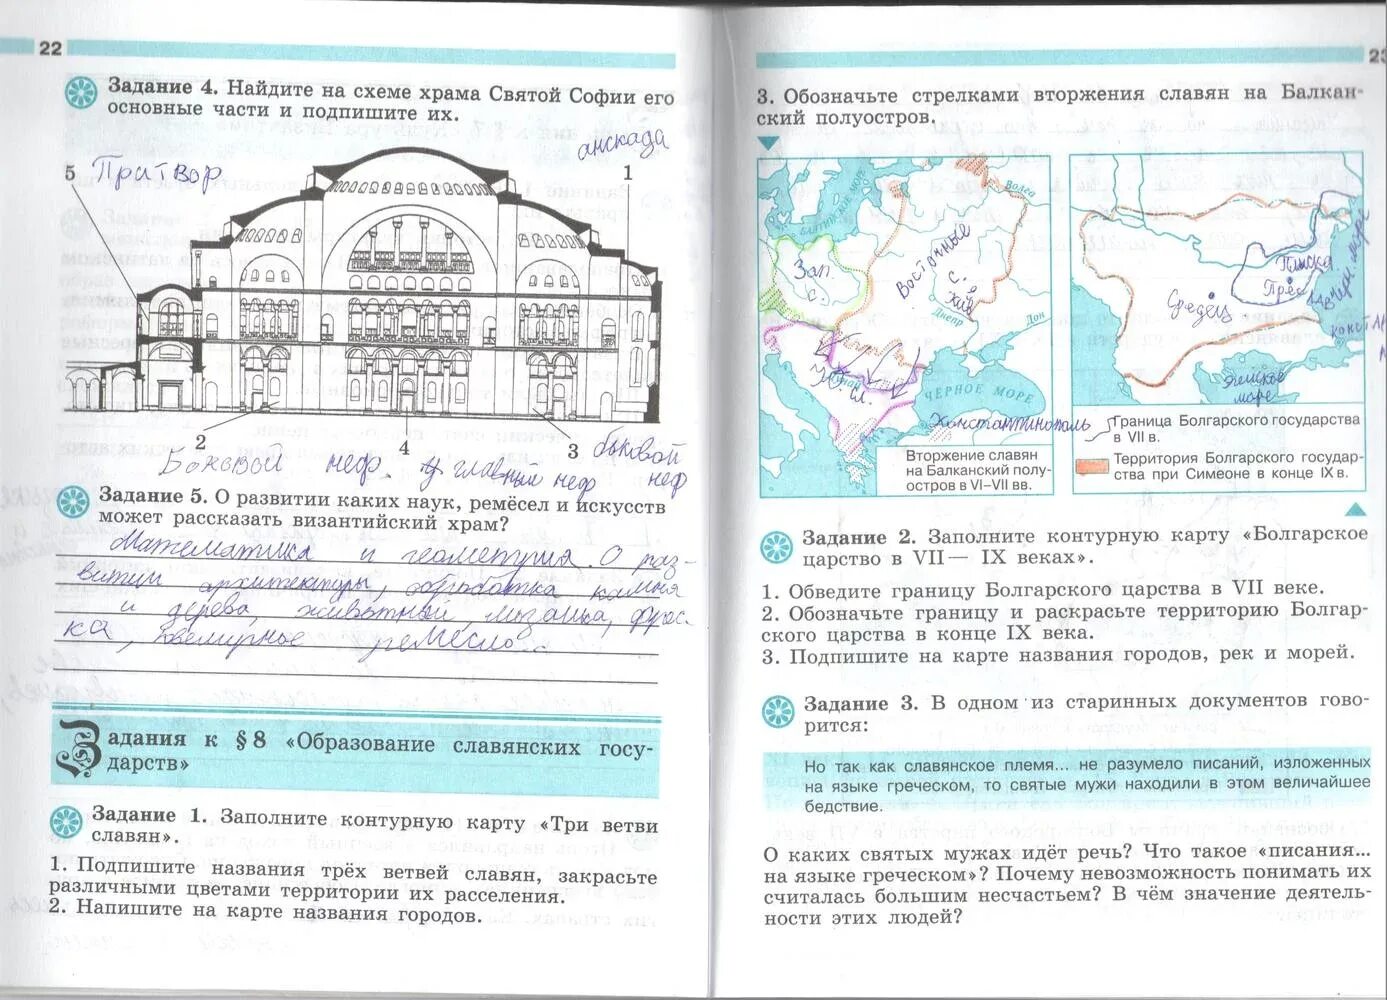 22
Задание 4. Найдите на схеме храма Святой Софии его
основные части и подпишите их.
анскада
5 Притвор
1
2
4
3
Боковой неф. 4 главный неф
боковой
неф
Задание 5. О развитии каких наук, ремёсел и искусств
может рассказать византийский храм?
Математика и геометрия. О раз-
витии архитектуры, обработка камня
и дерева, животный, мозаика, фрес-
ка, ювелирное ремесло.
Задания к § 8 «Образование славянских госу-
дарств»
Задание 1. Заполните контурную карту «Три ветви
славян».
1. Подпишите названия трёх ветвей славян, закрасьте
различными цветами территории их расселения.
2. Напишите на карте названия городов.
23
3. Обозначьте стрелками вторжения славян на Балкан-
ский полуостров.
БАЛТИЙСКОЕ МОРЕ
Волга
Зап.
с.
Восточные
с.
Киев
Днепр
Дон
Дунай
Ю. сл.
ЧЕРНОЕ МОРЕ
Константинополь
Вторжение славян
на Балканский полу-
остров в VI–VII вв.
Плиска
Прес
Средец
Черн. море
Эгейское
море
Граница Болгарского государства
в VII в.
Территория Болгарского государ-
ства при Симеоне в конце IX в.
Задание 2. Заполните контурную карту «Болгарское
царство в VII— IX веках».
1. Обведите границу Болгарского царства в VII веке.
2. Обозначьте границу и раскрасьте территорию Болгар-
ского царства в конце IX века.
3. Подпишите на карте названия городов, рек и морей.
Задание 3. В одном из старинных документов гово-
рится:
Но так как славянское племя... не разумело писаний, изложенных
на языке греческом, то святые мужи находили в этом величайшее
бедствие.
О каких святых мужах идёт речь? Что такое «писания...
на языке греческом»? Почему невозможность понимать их
считалась большим несчастьем? В чём значение деятель-
ности этих людей?